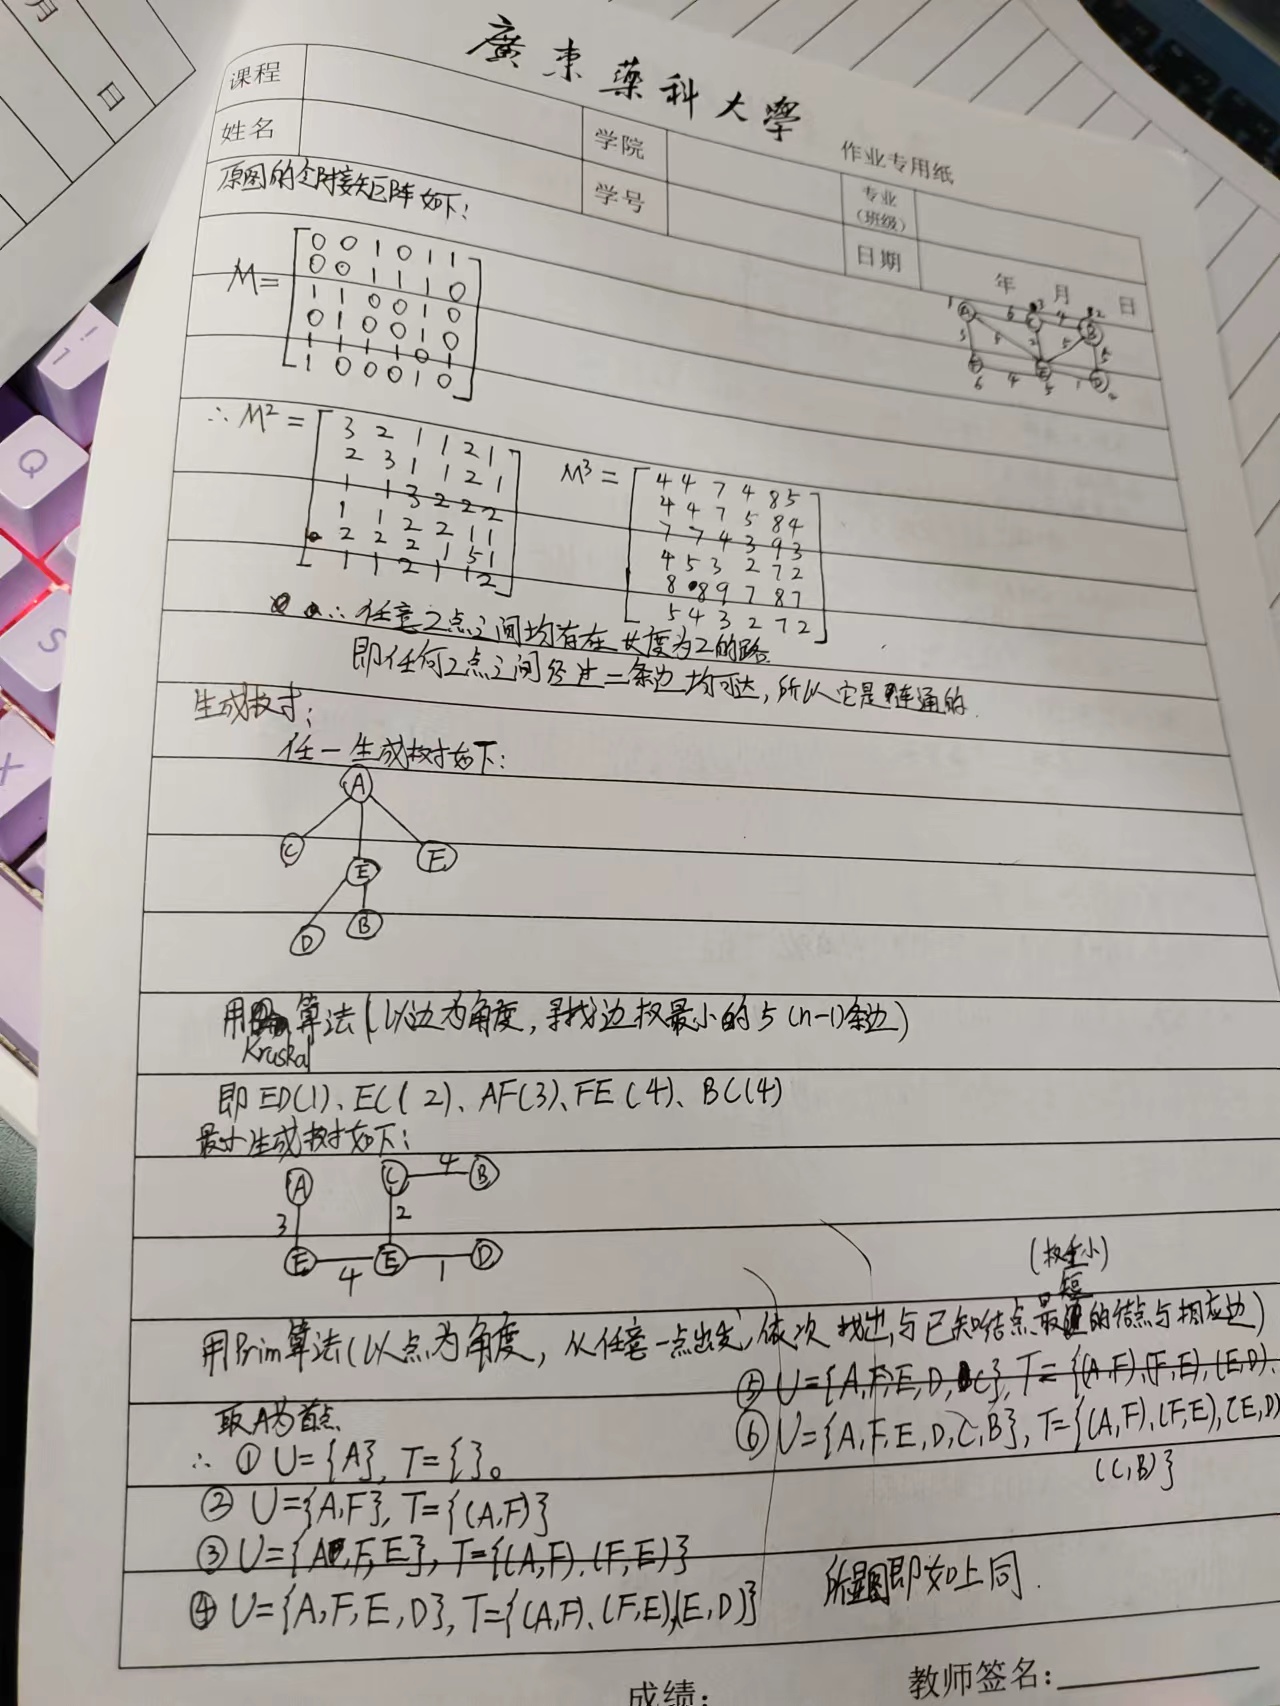 月
日
廣東藥科大學
作业专用纸
课程
姓名
学院
学号
专业
(班级)
日期
年 月 日
原图的邻接矩阵如下:
M=
0 0 1 0 1 1
0 0 1 1 1 0
1 1 0 0 1 0
0 1 0 0 1 0
1 1 1 1 0 1
1 0 0 0 1 0
∴ M² =
3 2 1 1 2 1
2 3 1 1 2 1
1 1 3 2 2 2
1 1 2 2 1 1
2 2 2 1 5 1
1 1 2 1 1 2
M³ =
4 4 7 4 8 5
4 4 7 5 8 4
7 7 4 3 9 3
4 5 3 2 7 2
8 8 9 7 8 7
5 4 3 2 7 2
∴ 任意2点之间均存在长度为2的路.
即任何2点之间经过二条边均可达,所以它是连通的.
生成树:
任一生成树如下:
A
C E E
D B
用 算法(以边为角度,寻找边权最小的5(n-1)条边)
Kruskal
即ED(1)、EC(2)、AF(3)、FE(4)、BC(4)
最小生成树如下:
A C 4 B
3 2
E 4 E 1 D
(权重小)
短
用Prim算法(以点为角度,从任意一点出发,依次找出与已知结点最 的结点与相应边)
取A为首点
∴ ① U={A}, T={}。
② U={A,F}, T={(A,F)}
③ U={A,F,E}, T={(A,F)、(F,E)}
④ U={A,F,E,D}, T={(A,F)、(F,E),(E,D)}
⑤ U={A,F,E,D,C}, T={(A,F),(F,E),(E,D)、
⑥ U={A,F,E,D,C,B}, T={(A,F)、(F,E),(E,D)
(C,B)}
图即如上同.
成绩:
教师签名:
!
1
Q
S
X